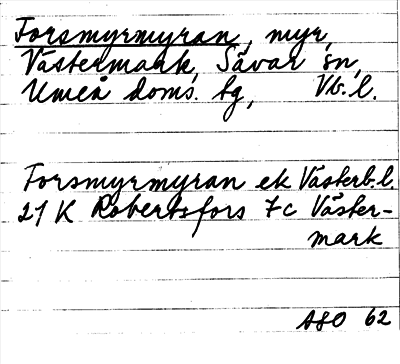 Forsmyrmyran, myr,
Västermark, Sävar sn,
Umeå doms. tg, Vb.l.
Forsmyrmyran ek Västerb.l.
21 K Robertsfors 7c Väster-
mark
ASO 62